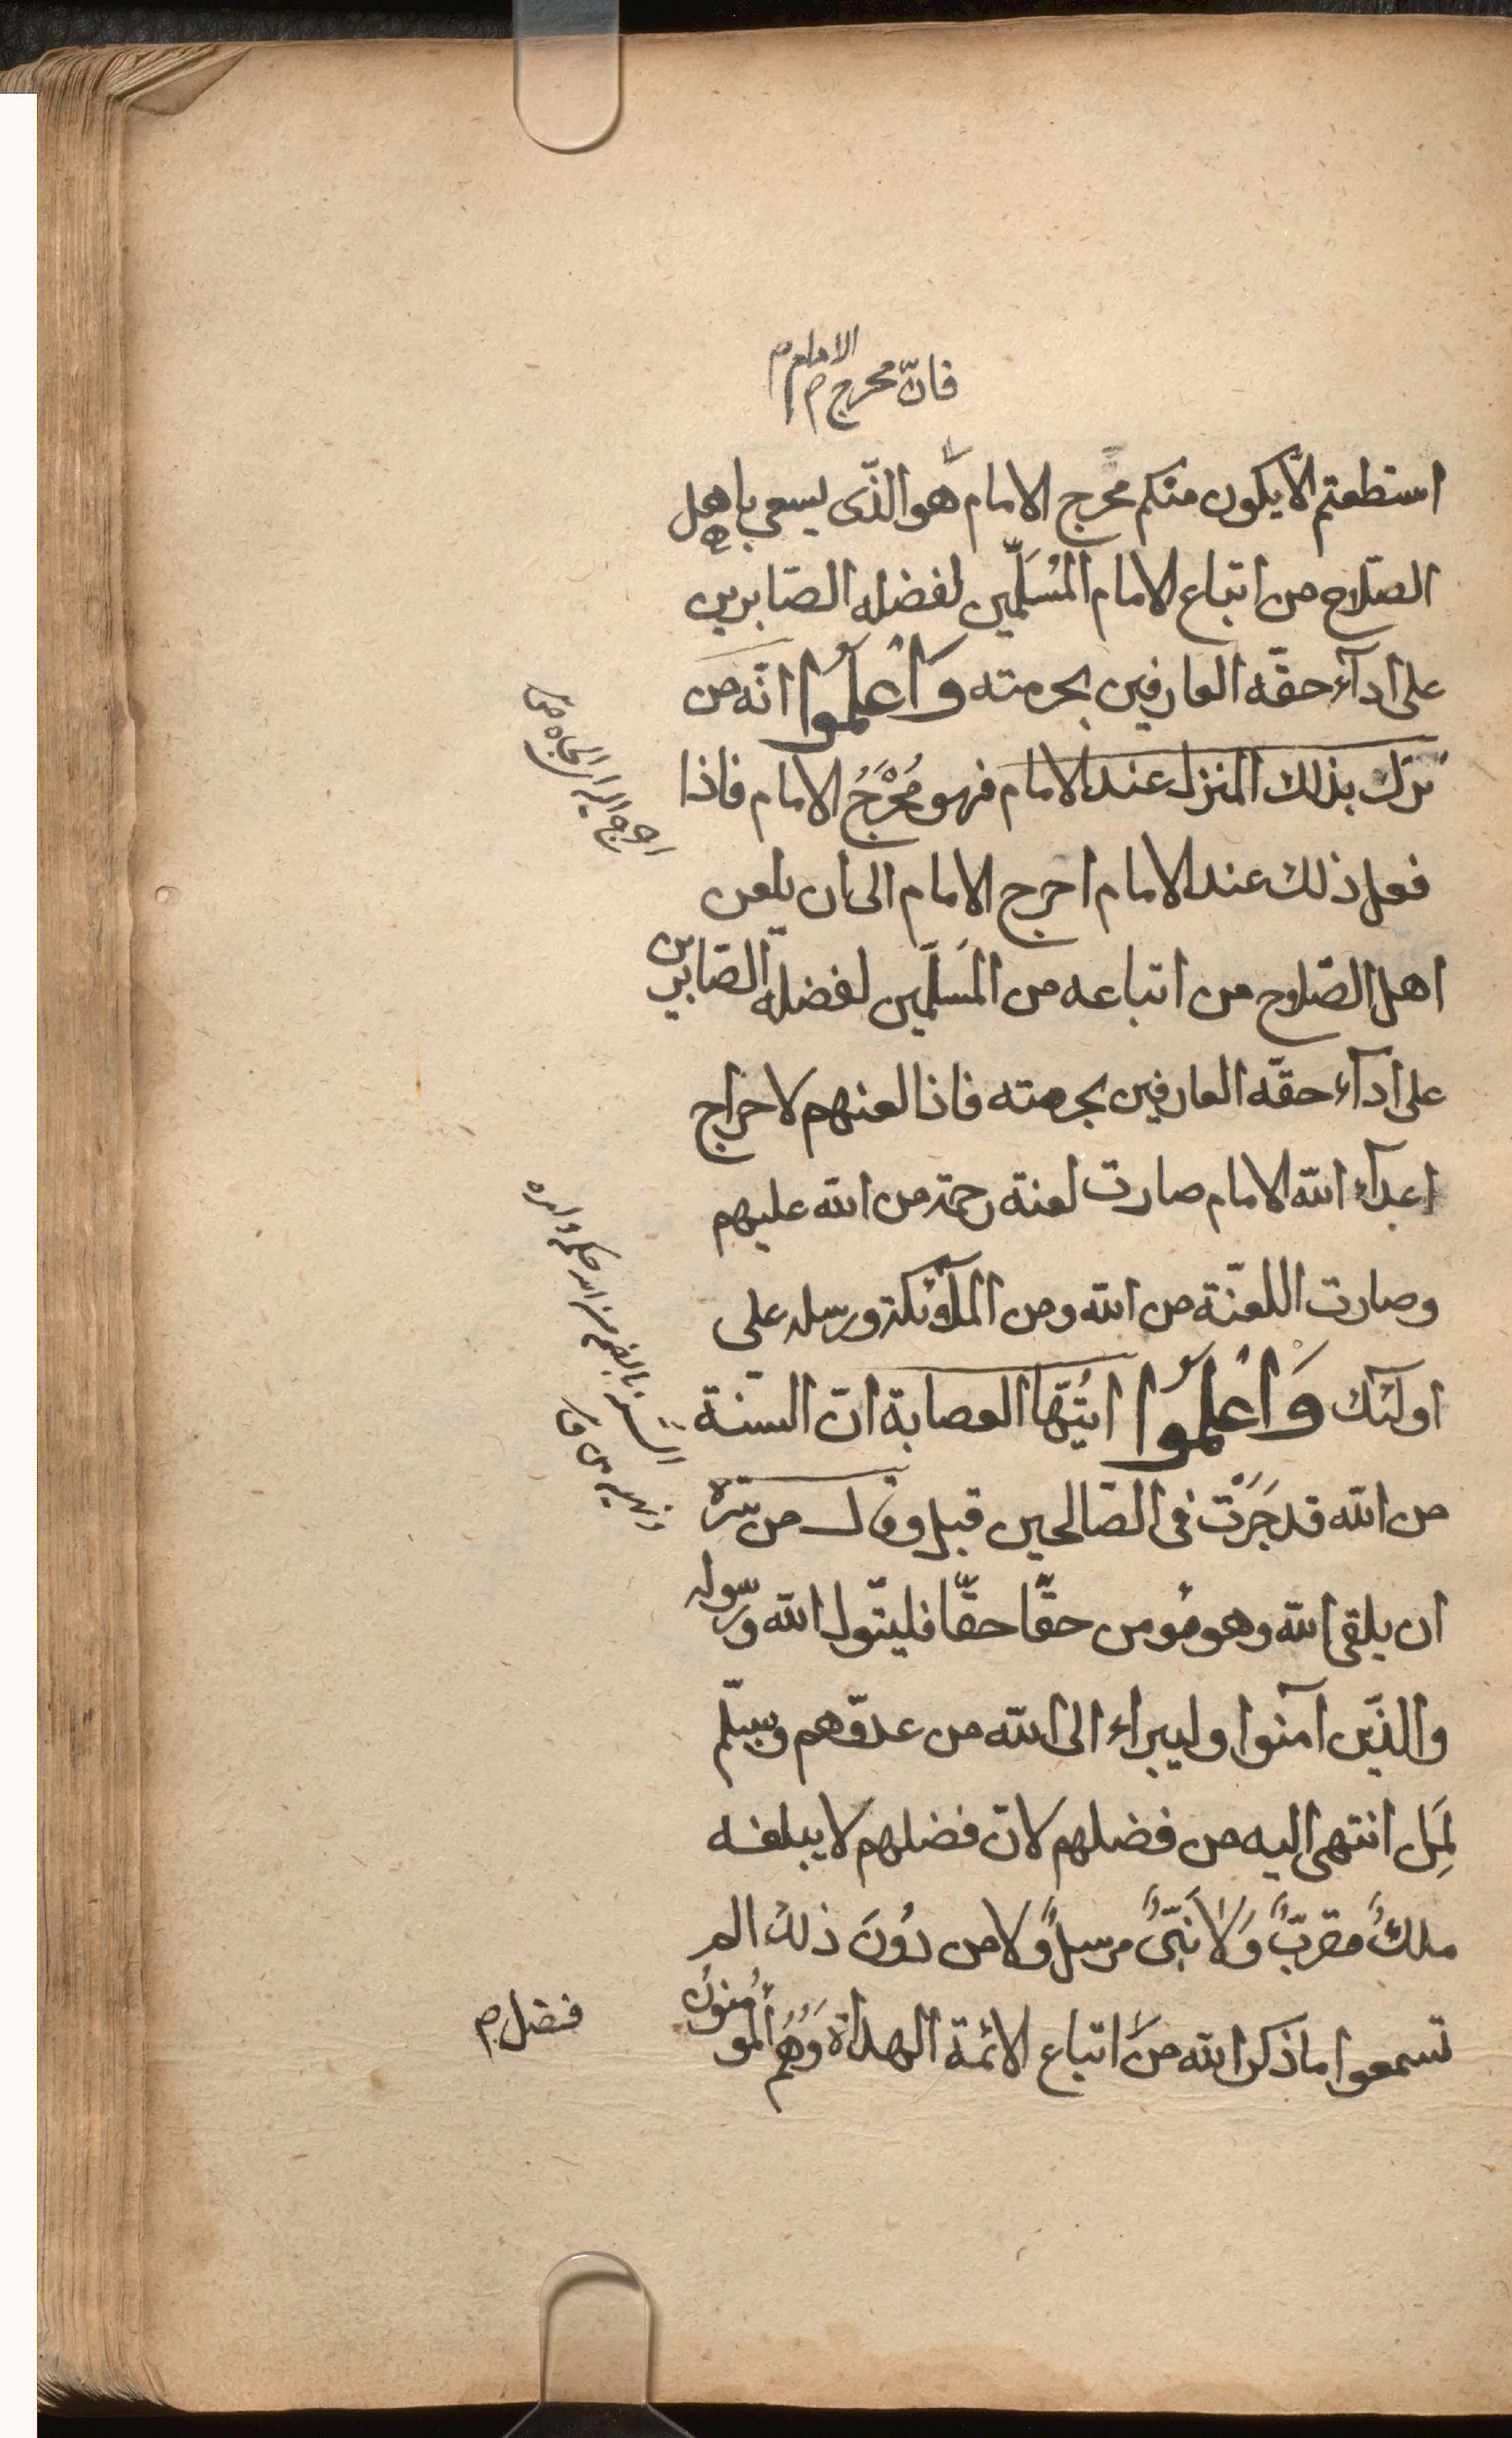 فانّ محرج الامام م
استطعتم الّا يكون منكم محرج الامام هو الذّى يسعى باهل
الصّلاح من اتباع الامام المُسَلِّمين لفضله الصّابرين
على ادآء حقّه العارفين بحرمته وَاعْلَمُوا انّه من
نزل بذلك المنزل عند الامام فهو مُحْرِجُ الامام فاذا
فعل ذلك عند الامام احرج الامام الى ان يلعن
اهل الصّلاح من اتباعه من المَسلّمين لفضله الصّابرين
على ادآء حقّه العارفين بحرمته فاذا لعنهم لاحراج
اعدآء الله الامام صارت لعنة رحمة من الله عليهم
وصارت اللعنّة من الله ومن الملآئكة ورسله على
اولئك وَاعْلَمُوا ايّتُها العصابة انّ السّنة
من الله قد جَرَتْ فى الصّالحين قبل وقال من سّره
ان يلقى الله وهو مؤمن حقّا حقّا فليتّول الله ورسوله
والذّين آمنوا وليبراء الى الله من عدوّهم ويسلّم
لِمَا انتهى اليه من فضلهم لانّ فضلهم لا يبلغه
ملكٌ مقربٌّ وَلَا نَبىٌّ مرسلٌ ولا من دُونَ ذلك الم
تسمعوا ما ذكر الله من اتباع الائمة الهداة وَهُمُ المؤمنونُ
فضل م
احرجه اليه الجاه ص
السنة بالضم من الله حكمه وامره
ونهيه ق